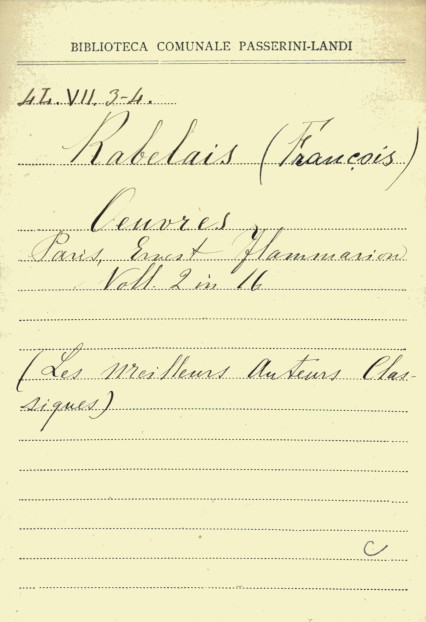 BIBLIOTECA COMUNALE PASSERINI-LANDI
4L. VII. 3-4.
Rabelais (François)
Oeuvres
Paris, Ernest Flammarion
Voll. 2 in 16
(Les meilleurs Auteurs Clas-
siques)
C